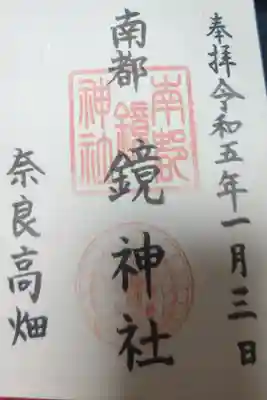 奉拝令和五年一月三日
南都鏡神社
奈良高畑
南都
鏡
神社